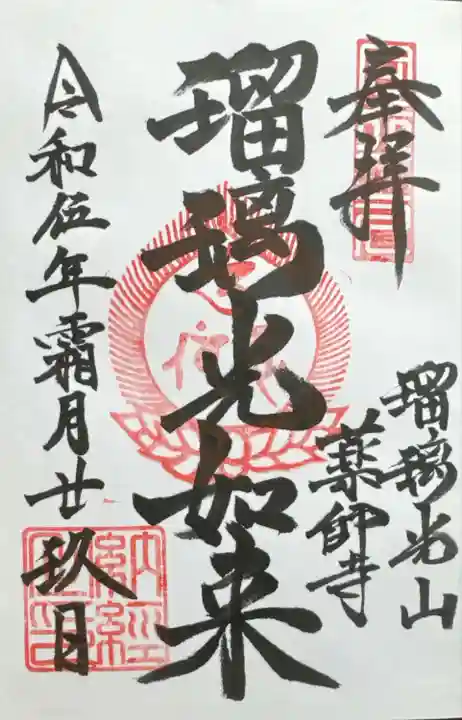 奉拝
瑠璃光山
薬師寺
瑠璃光如来
令和伍年霜月廿玖日
納経